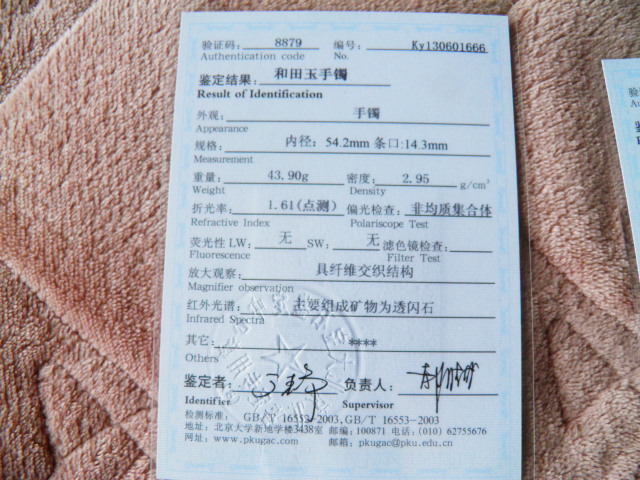 验证码： 8879 编号： Ky130601666
Authentication code No.
鉴定结果： 和田玉手镯
Result of Identification
外观： 手镯
Appearance
规格： 内径：54.2mm 条口:14.3mm
Measurement
重量： 43.90g 密度： 2.95 g/cm³
Weight Density
折光率： 1.61(点测) 偏光检查： 非均质集合体
Refractive Index Polariscope Test
荧光性 LW： 无 SW： 无 滤色镜检查：
Fluorescence Filter Test
放大观察： 具纤维交织结构
Magnifier observation
红外光谱： 主要组成矿物为透闪石
Infrared Spectra
其它： ****
Others
鉴定者： 负责人：
Identifier Supervisor
检测标准： GB/T 16552-2003,GB/T 16553-2003
地址：北京大学新地学楼3438室 邮编：100871 电话：(010) 62755676
网址：www.pkugac.com 邮箱：pkugac@pku.edu.cn